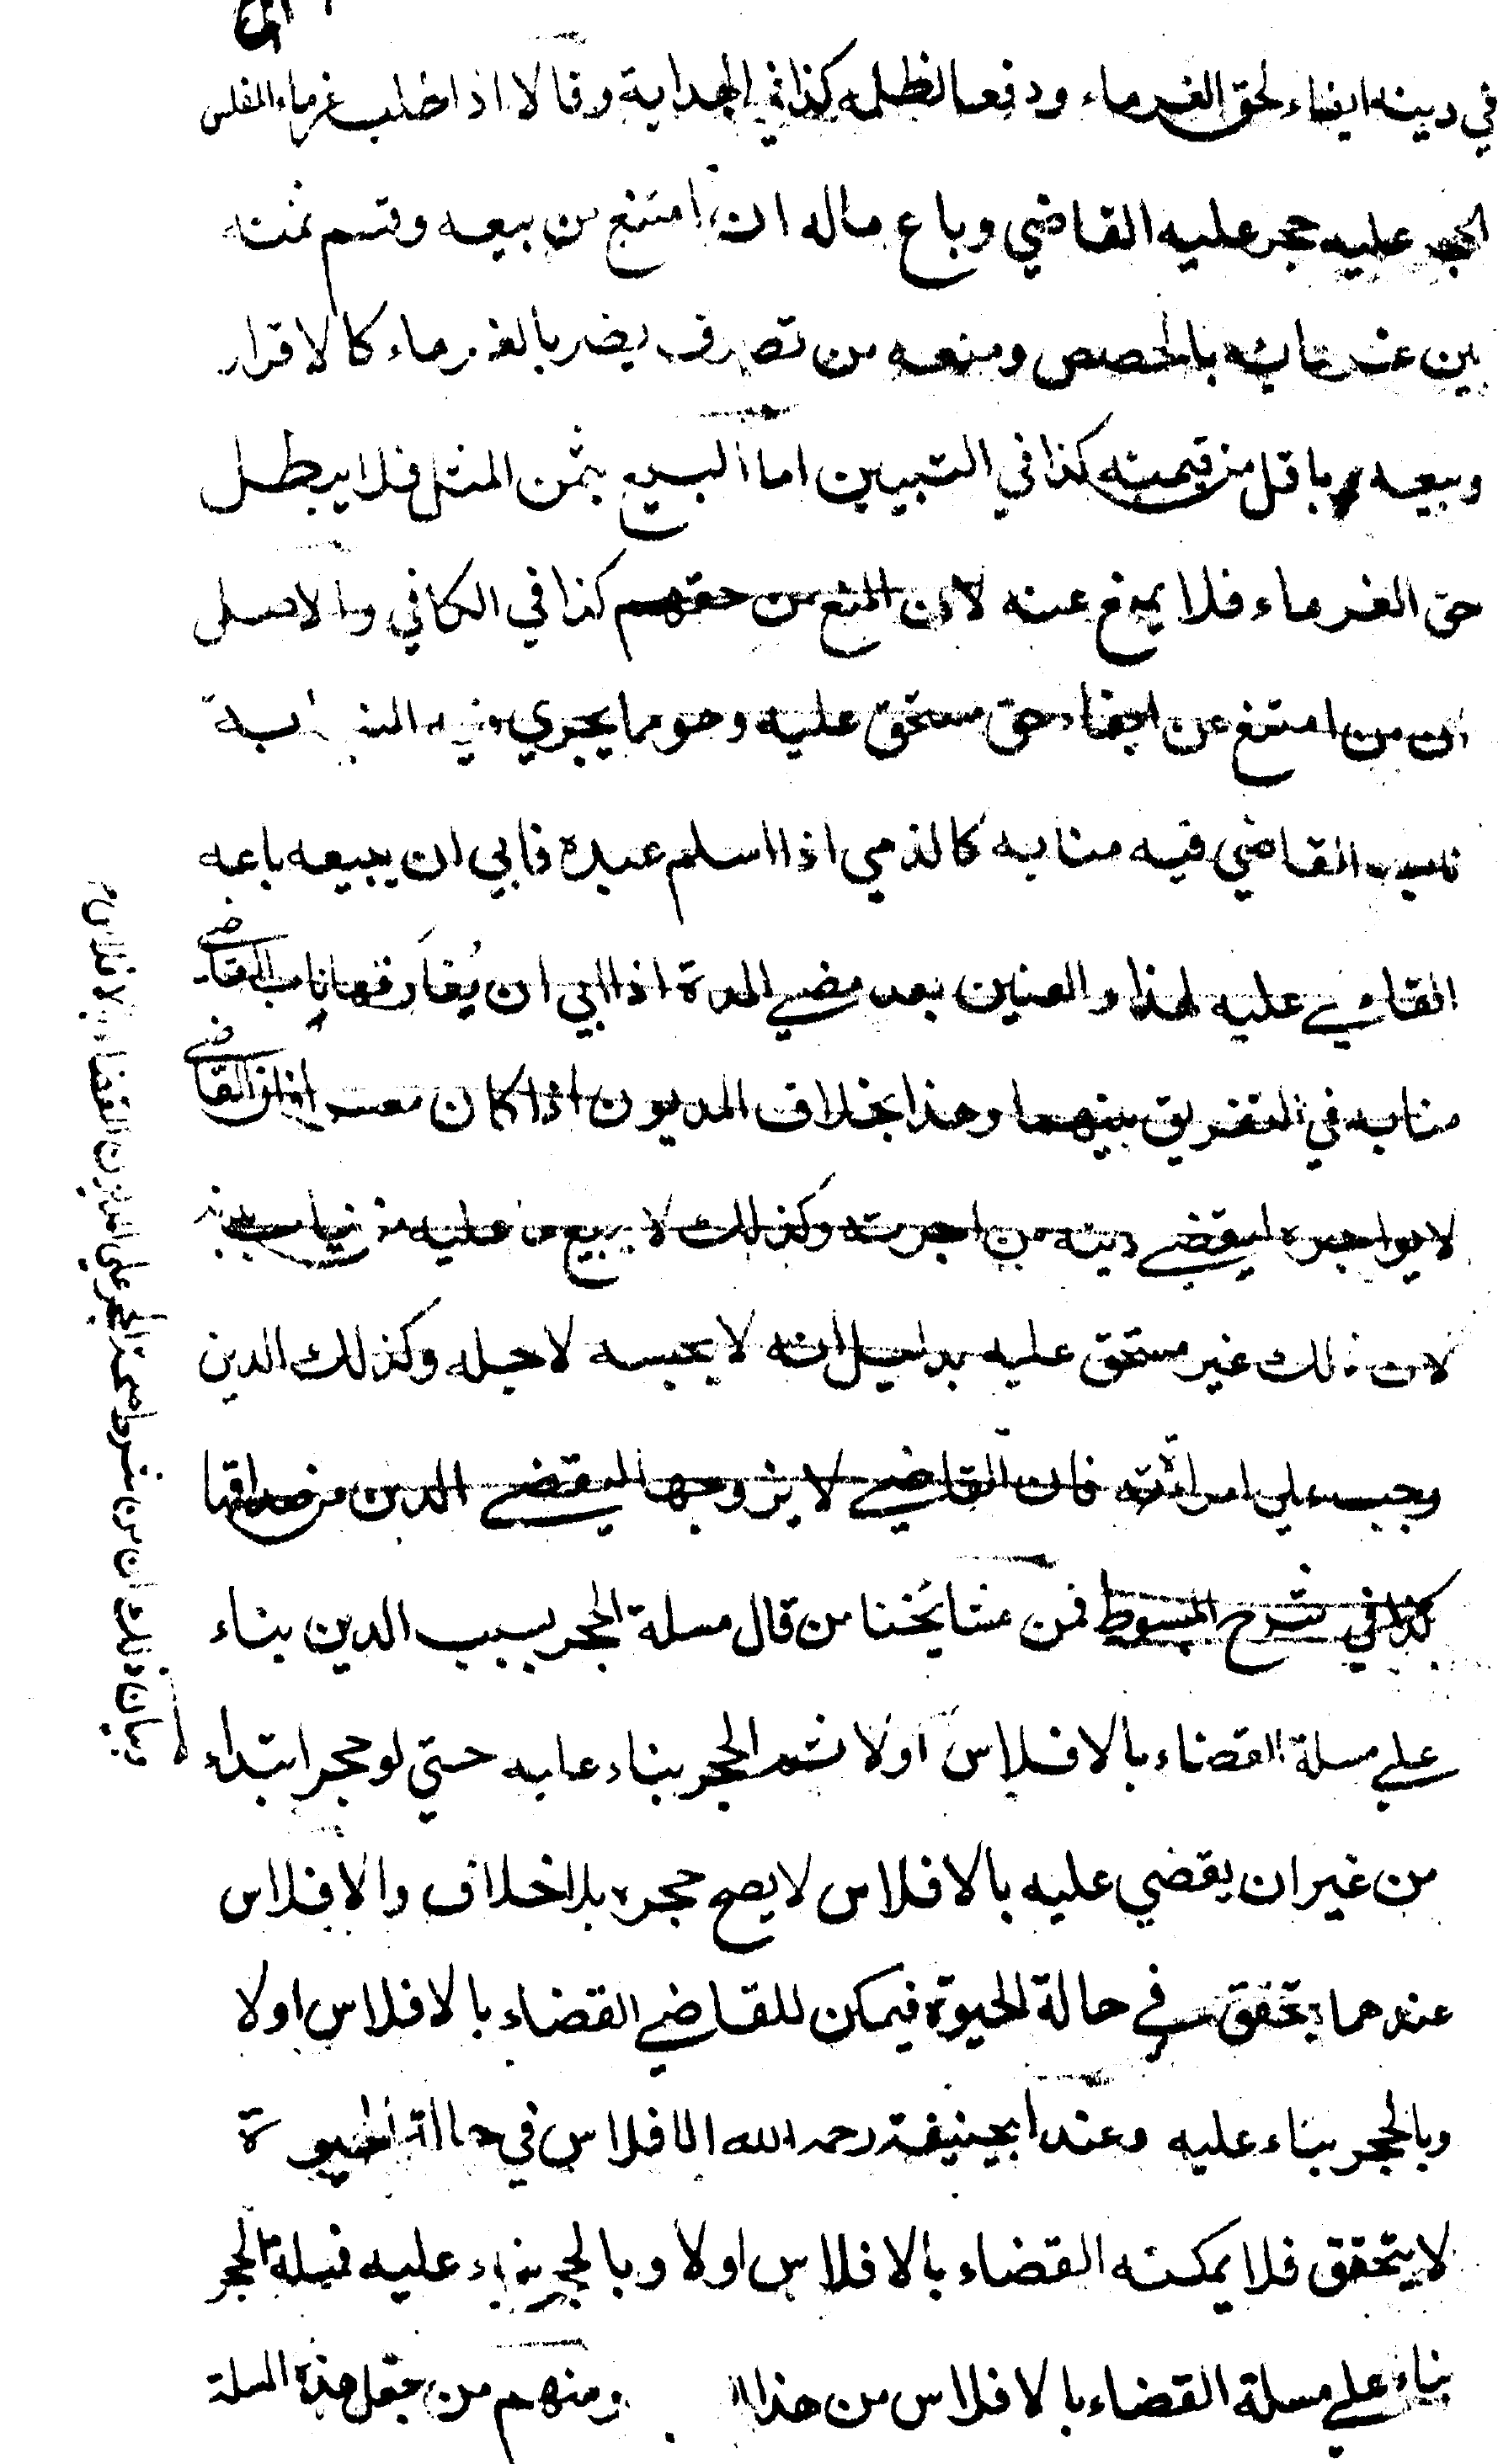 في دينه ايفاء لحق الغرماء ودفعا لظلمه كذا في الهداية وقالا اذا طلب غرماء المفلس
الحجر عليه حجر عليه القاضي وباع ماله ان امتنع من بيعه وقسم ثمنه
بين غرمائه بالحصص ومنعه من تصرف يضر بالغرماء كالاقرار
وبيعه باقل من قيمته كذا في التبيين اما البيع بثمن المثل فلا يبطل
حق الغرماء فلا يمنع عنه لان المنع من حقهم كذا في الكافي والاصل
ان من امتنع عن ايفاء حق مستحق عليه وهو مما يجري فيه النيابة
القاضي فيه منابه كالذمي اذا اسلم عبده فابي ان يبيعه باعه
القاضي عليه لهذا والعنين بعد مضي المدة اذا ابي ان يفارقها ناب القاضي
منابه في التفريق بينهما وهذا بخلاف المديون اذا كان معسرا فان القاضي
لا يواجره ليقضي دينه من اجرته وكذلك لا يبيع ما عليه من ثياب بدنه
لان ذلك غير مستحق عليه بدليل انه لا يحبسه لاجله وكذلك الدين
وجب علي امراة فان القاضي لا يزوجها ليقضي الدين من صداقها
كذا في شرح المبسوط فمن مشايخنا من قال مسلة الحجر بسبب الدين بناء
علي مسلة القضاء بالافلاس اولا ثم الحجر بناء عليه حتي لو حجر ابتداء
من غير ان يقضي عليه بالافلاس لا يصح حجره بلا خلاف والافلاس
عندهما يتحقق في حالة الحيوة فيمكن للقاضي القضاء بالافلاس اولا
وبالحجر بناء عليه وعند ابي حنيفة رحمه الله الافلاس في حالة الحيوة
لا يتحقق فلا يمكنه القضاء بالافلاس اولا وبالحجر بناء عليه فمسلة الحجر
بناء علي مسلة القضاء بالافلاس من هذا ومنهم من جعل هذه المسلة
وبيان ذلك ان من شرط صحة الحجر علي المديون القضاء بالافلاس